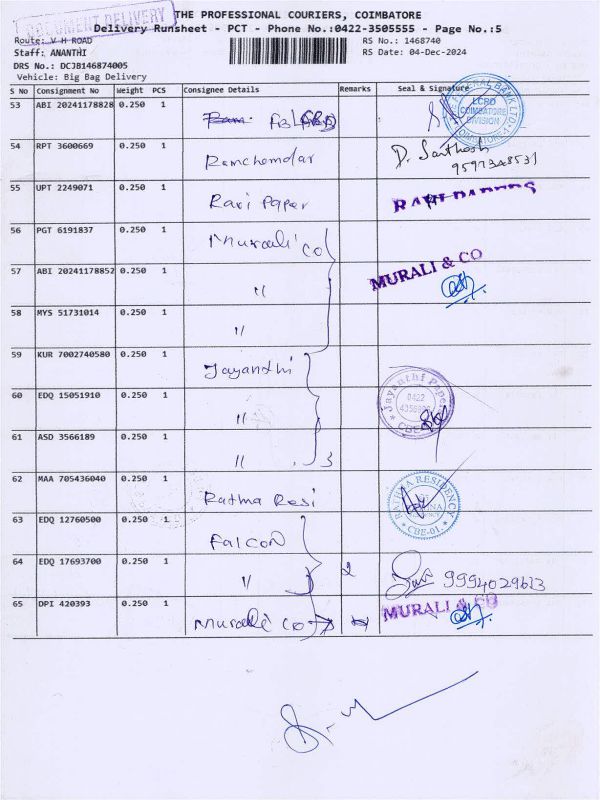 DOCUMENT DELIVERY
THE PROFESSIONAL COURIERS, COIMBATORE
Delivery Runsheet - PCT - Phone No.:0422-3505555 - Page No.:5
Route: V H ROAD
RS No.: 1468740
Staff: ANANTHI
RS Date: 04-Dec-2024
DRS No.: DCJB146874005
Vehicle: Big Bag Delivery
S No Consignment No Weight PCS Consignee Details Remarks Seal & Signature
53 ABI 20241178828 0.250 1
LCRD COIMBATORE DIVISION
54 RPT 3600669 0.250 1 Ramchandar D. Santhosh
9597348531
55 UPT 2249071 0.250 1 Ravi Paper RAVI PAPERS
56 PGT 6191837 0.250 1 Murali co
57 ABI 20241178852 0.250 1 " MURALI & CO
58 MYS 51731014 0.250 1 "
59 KUR 7002740580 0.250 1 Jayanthi
60 EDQ 15051910 0.250 1 " Jayanthi Paper 0422 CBE
61 ASD 3566189 0.250 1 " 3
62 MAA 705436040 0.250 1 Rathna Resi RATHNA RESIDENCY CBE-01.
63 EDQ 12760500 0.250 1 Falcon
64 EDQ 17693700 0.250 1 " 2 9994029613
65 DPI 420393 0.250 1 Murali co MURALI & CO